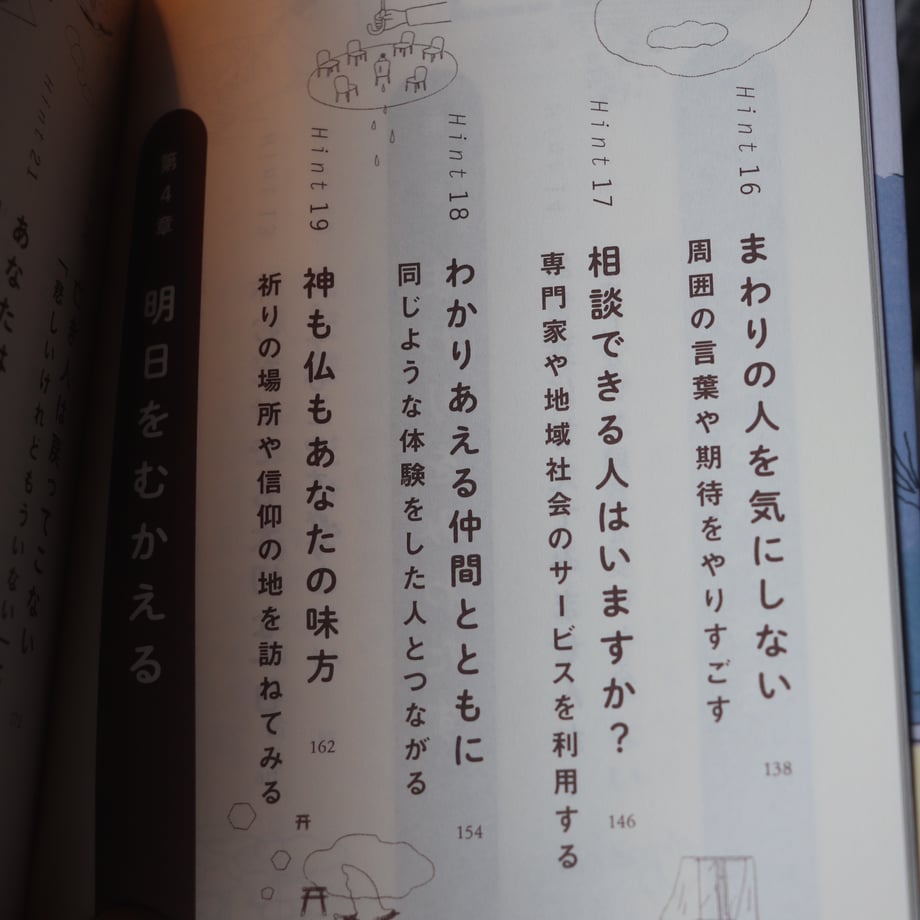 Hint 16
まわりの人を気にしない
周囲の言葉や期待をやりすごす
138
Hint 17
相談できる人はいますか？
専門家や地域社会のサービスを利用する
146
Hint 18
わかりあえる仲間とともに
同じような体験をした人とつながる
154
Hint 19
神も仏もあなたの味方
祈りの場所や信仰の地を訪ねてみる
162
第4章 明日をむかえる
Hint 21
あなたは